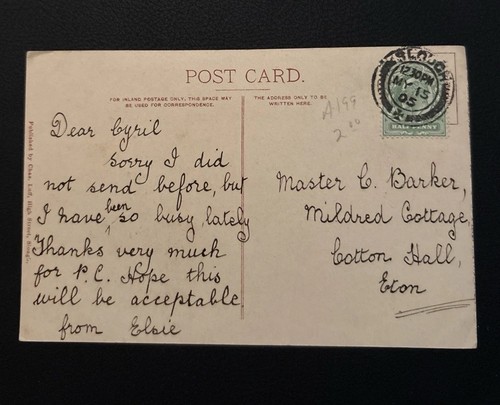 POST CARD.
FOR INLAND POSTAGE ONLY, THIS SPACE MAY
BE USED FOR CORRESPONDENCE.
THE ADDRESS ONLY TO BE
WRITTEN HERE.
SLOUGH
12 30PM
15
05
HALFPENNY
A199
2
Dear Cyril
sorry I did
not send before, but
I have been so busy lately
Thanks very much
for P.C. Hope this
will be acceptable
from Elsie
Master C. Barker,
Mildred Cottage,
Cotton Hall,
Eton
Published by Chas. Luff, High Street, Slough.